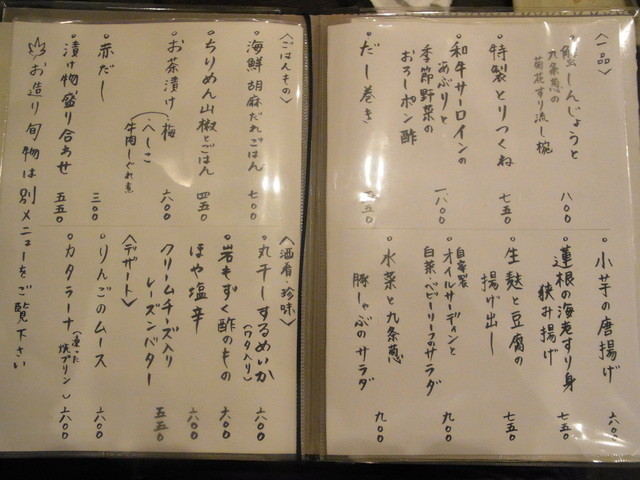 〈一品〉
蟹しんじょうと
九条葱の
菊花すり流し椀
八〇〇
特製とりつくね
七五〇
和牛サーロインの
あぶりと
季節野菜の
おろしポン酢
一八〇〇
だし巻き
五五〇
小芋の唐揚げ
六〇〇
蓮根の海老すり身
狭み揚げ
七五〇
生麩と豆腐の
揚げ出し
七五〇
自家製
オイルサーディンと
白菜・ベビーリーフのサラダ
九〇〇
水菜と九条葱
豚しゃぶのサラダ
九〇〇
〈ごはんもの〉
海鮮胡麻だれごはん
七〇〇
ちりめん山椒とごはん
四五〇
お茶漬け
梅
へしこ
牛肉しぐれ煮
六〇〇
赤だし
三〇〇
漬け物盛り合わせ
五五〇
〈酒肴・珍味〉
丸干しするめいか
(ワタ入り)
六〇〇
岩もずく酢のもの
六〇〇
ほや塩辛
六〇〇
クリームチーズ入り
レーズンバター
五五〇
〈デザート〉
りんごのムース
六〇〇
カタラーナ
(凍った
焼プリン)
六〇〇
お造り旬物は別メニューをご覧下さい